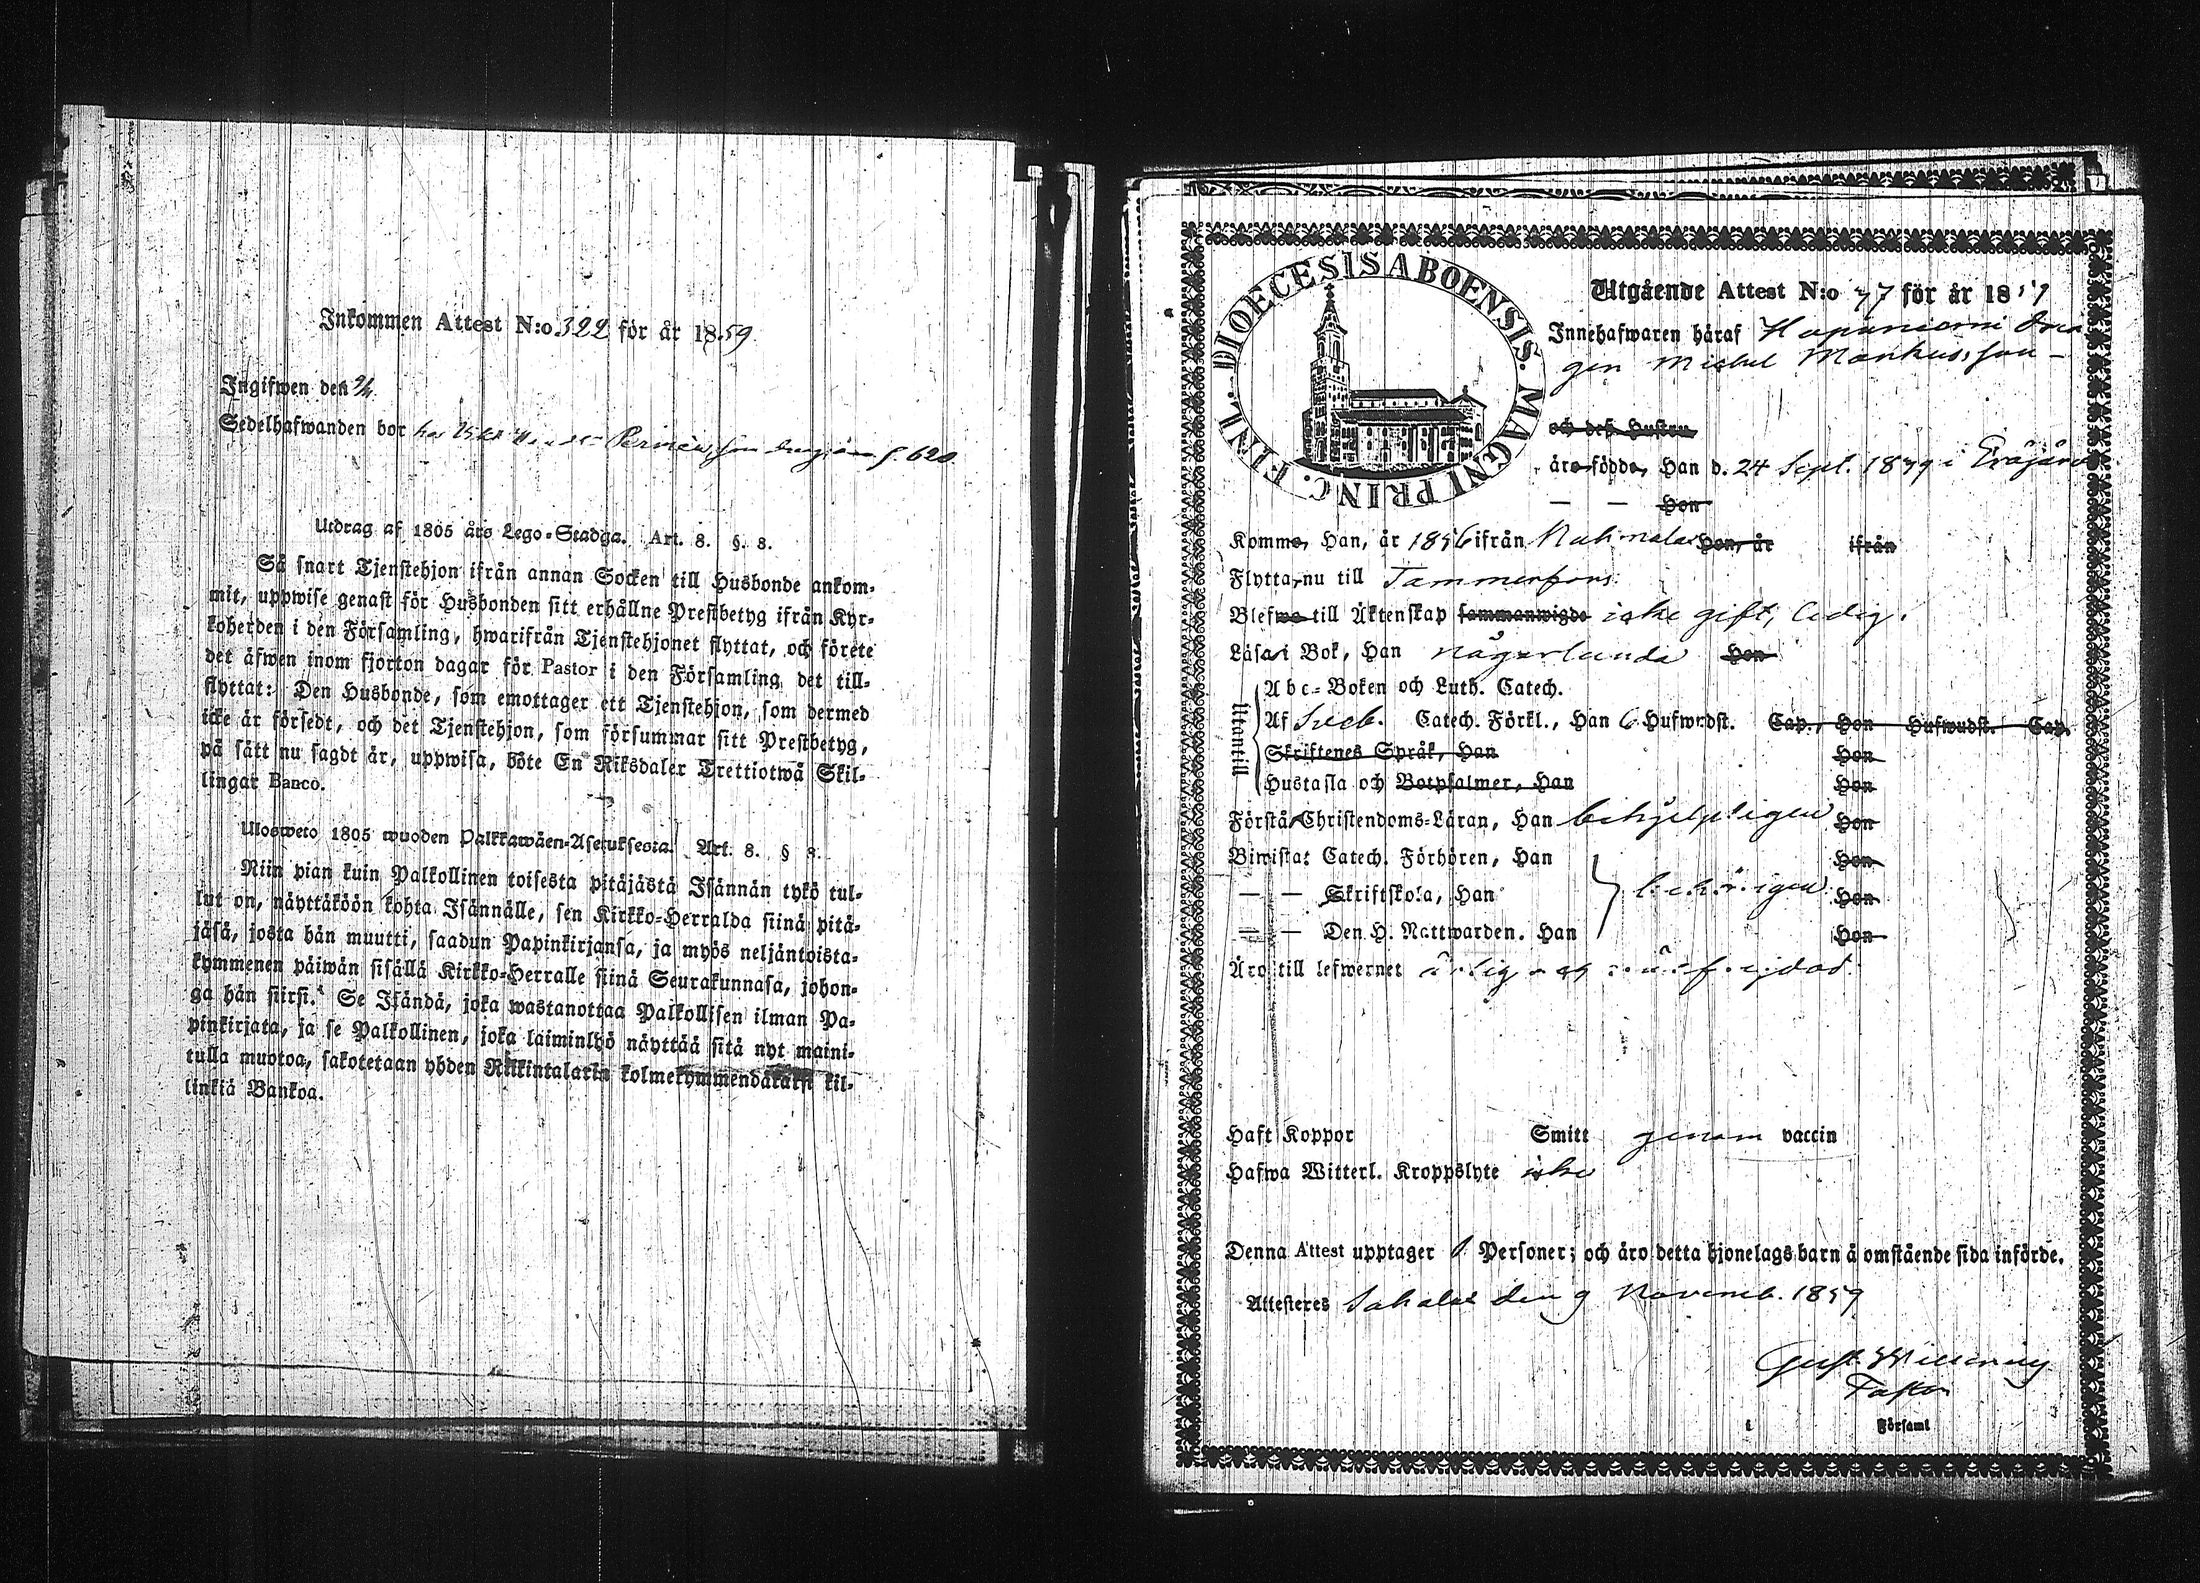 Inkommen Attest N:o 322 för år 1859
Ingifwen den 9/11
Sedelhafwanden bor hos p. 620
Utdrag af 1805 års Lego-Stadga. Art. 8. §. 8.
Så snart Tjenstehjon ifrån annan Socken till Husbonde ankom-
mit, uppwise genast för Husbonden sitt erhållne Prestbetyg ifrån Kyr-
koherden i den Församling, hwarifrån Tjenstehjonet flyttat, och förete
det äfwen inom fjorton dagar för Pastor i den Församling det till-
flyttat: Den Husbonde, som emottager ett Tjenstehjon, som dermed
icke är försedt, och det Tjenstehjon, som försummar sitt Prestbetyg,
på sätt nu sagdt är, uppwisa, böte En Riksdaler Trettiotwå Skil-
lingar Banco.
Ulosweto 1805 wuoden Palkkawäen-Asetuksesta. Art. 8. § 8.
Niin pian kuin Palkollinen toisesta pitäjästä Isännän tykö tul-
lut on, näyttäköön kohta Isännälle, sen Kirkko-Herralda siinä pitä-
jäsä, josta hän muutti, saadun Papinkirjansa, ja myös neljäntoista-
kymmenen päiwän sisällä Kirkko-Herralle siinä Seurakunnasa, johon-
ga hän siirsi. Se Isändä, joka wastanottaa Palkollisen ilman Pa-
pinkirjata, ja se Palkollinen, joka laiminlyö näyttää sitä nyt maini-
tulla muotoa, sakotetaan yhden Riikintalarin kolmekymmendäkaksi kil-
linkiä Bankoa.
DIOECESIS ABOENSIS. MAGNI PRINC. FINL.
Utgående Attest N:o 77 för år 1859
Innehafwaren häraf Hapaniemi drän
gen Michel Markusson
och dess Hustru
äro födde, Han d. 24 Sept. 1839 i Eräjärvi
— — Hon
Komme, Han, år 1856 ifrån Hon, år ifrån
Flytta nu till Tammerfors
Blefwe till Äktenskap sammanwigde icke gift, ledig.
Läsa i Bok, Han någorlunda Hon
Utantill
Abc-Boken och Luth. Catech.
Af Sveb. Catech. Förkl., Han 6 Hufwudst. Cap., Hon Hufwudst. Cap.
Skriftenes Språk, Han Hon
Hustafla och Botpsalmer, Han Hon
Förstå Christendoms-Läran, Han behjelpligen Hon
Biwistat Catech. Förhören, Han Hon
— — Skriftskola, Han behörigen Hon
— — Den H. Nattwarden. Han Hon
Äro till lefwernet ärlig och wälfrejdad
Haft Koppor Smitt genom vaccin
Hafwa Witterl. Kroppslyte icke
Denna Attest upptager 1 Personer; och äro detta hjonelags barn å omstående sida införde.
Attesteres Sahalax den 9 Novemb. 1859
Gust.
Pastor
i Församl